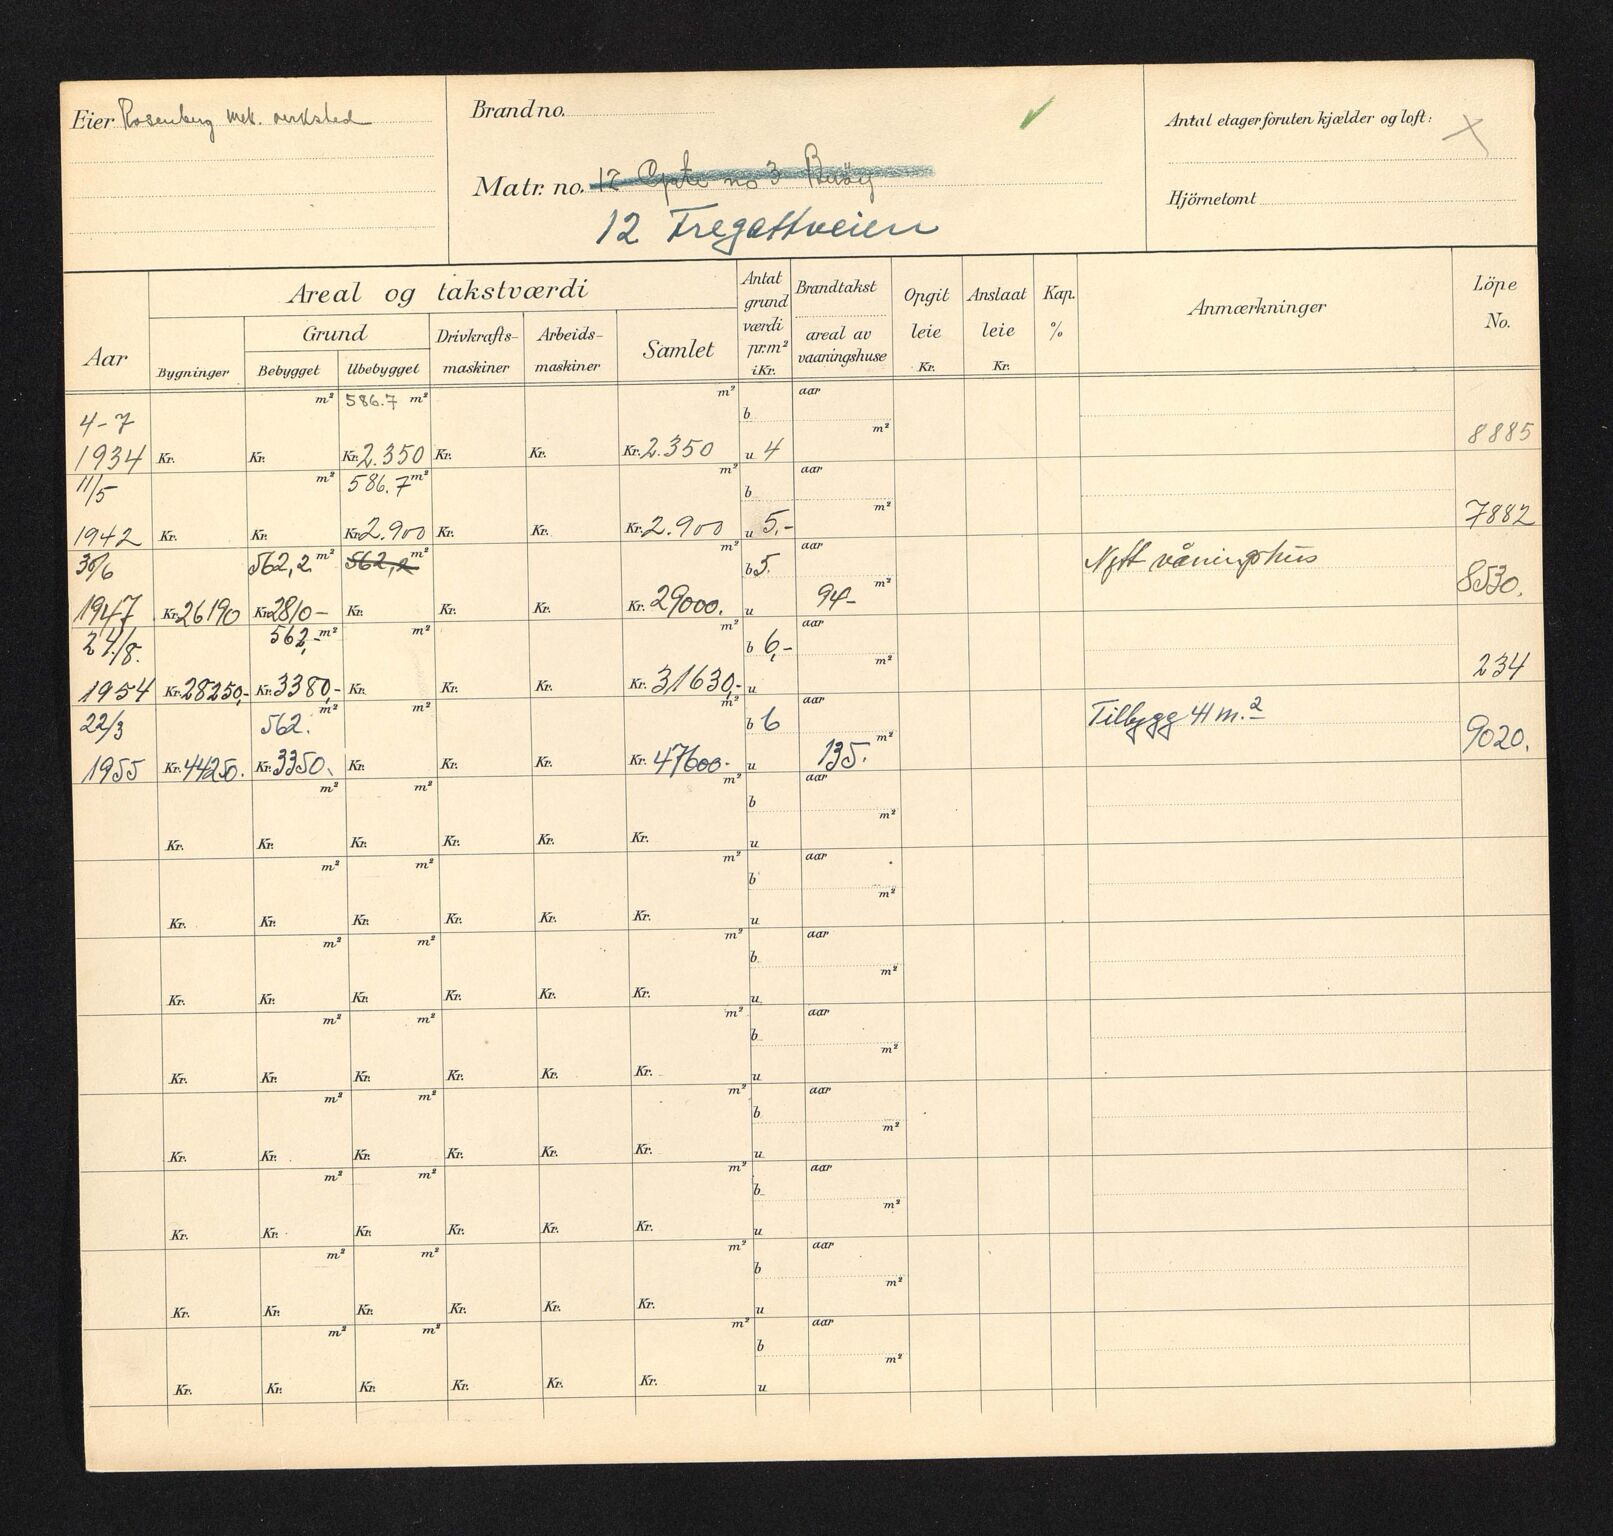 Eier Rosenberg mek. verksted
Brand no.
Matr. no. 12 Gate no 3 Buøy
12 Fregattveien
Antal etager foruten kjælder og loft:
Hjörnetomt
Aar
Areal og takstværdi
Bygninger
Grund
Bebygget Ubebygget
Drivkrafts-
maskiner
Arbeids-
maskiner
Samlet
Antat
grund
værdi
pr.m²
i Kr.
Brandtakst
areal av
vaaningshuse
Opgit
leie
Kr.
Anslaat
leie
Kr.
Kap.
%
Anmærkninger
Löpe
No.
m² 586.7 m² m² b aar
4-7 m² 8885
1934 Kr. Kr. Kr. 2.350 Kr. Kr. Kr. 2.350 u 4
11/5 m² 586.7 m² m² b aar
m² 7882
1942 Kr. Kr. Kr. 2.900 Kr. Kr. Kr. 2.900 u 5.-
30/6 562,2 m² 562,2 m² m² b 5. aar Nytt våningshus
94- m² 8530.
1947 Kr. 26190 Kr. 2810- Kr. Kr. Kr. Kr. 29000. u
24/8. 562,- m² m² m² b 6,- aar
m² 234
1954 Kr. 28250,- Kr. 3380,- Kr. Kr. Kr. Kr. 31630,- u
22/3 562. m² m² m² b 6 aar Tilbygg 41 m.²
135. m² 9020.
1955 Kr. 44250. Kr. 3350. Kr. Kr. Kr. Kr. 47600- u
m² m² m² b aar
m²
Kr. Kr. Kr. Kr. Kr. Kr. u
m² m² m² b aar
m²
Kr. Kr. Kr. Kr. Kr. Kr. u
m² m² m² b aar
m²
Kr. Kr. Kr. Kr. Kr. Kr. u
m² m² m² b aar
m²
Kr. Kr. Kr. Kr. Kr. Kr. u
m² m² m² b aar
m²
Kr. Kr. Kr. Kr. Kr. Kr. u
m² m² m² b aar
m²
Kr. Kr. Kr. Kr. Kr. Kr. u
m² m² m² b aar
m²
Kr. Kr. Kr. Kr. Kr. Kr. u
m² m² m² b aar
m²
Kr. Kr. Kr. Kr. Kr. Kr. u